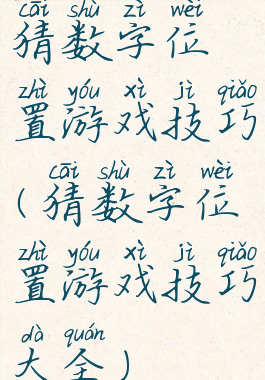 cāi shù zì wèi
猜数字位
zhì yóu xì jì qiǎo
置游戏技巧
cāi shù zì wèi
(猜数字位
zhì yóu xì jì qiǎo
置游戏技巧
dà quán
大全)